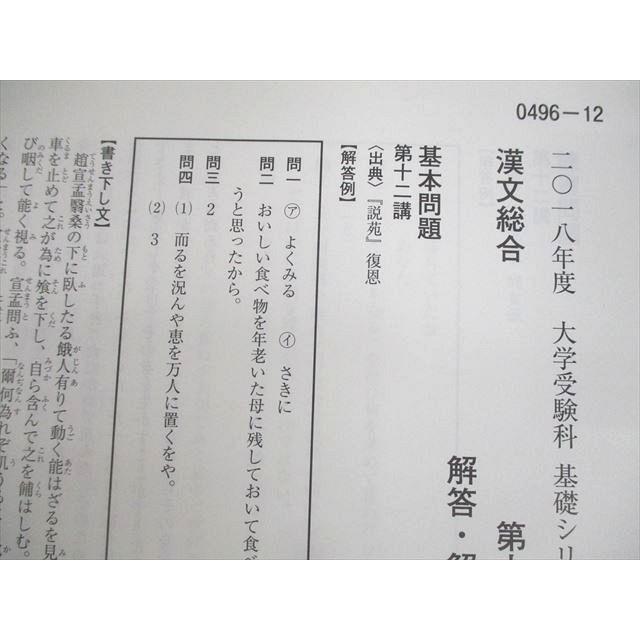 0496-12
二〇一八年度　大学受験科　基礎シリ
漢文総合　第
解答・解
基本問題
第十二講
〈出典〉『説苑』復恩
【解答例】
問一　㋐　よくみる　㋑　さきに
問二　おいしい食べ物を年老いた母に残しておいて食べ
うと思ったから。
問三　2
問四　(1)　而るを況んや恵を万人に置くをや。
(2)　3
【書き下し文】
趙宣孟翳桑の下に臥したる餓人有りて動く能はざるを見
車を止めて之が為に飧を下し、自ら含んで之を餔はしむ。
び咽して能く視る。宣孟問ふ、「爾何為れぞ飢